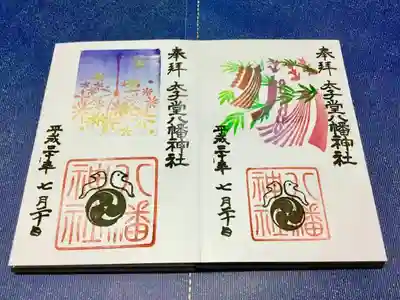 奉拝
太子堂八幡神社
八幡
神社
平成三十年 七月二十日
奉拝
太子堂八幡神社
八幡
神社
平成三十年 七月二十日